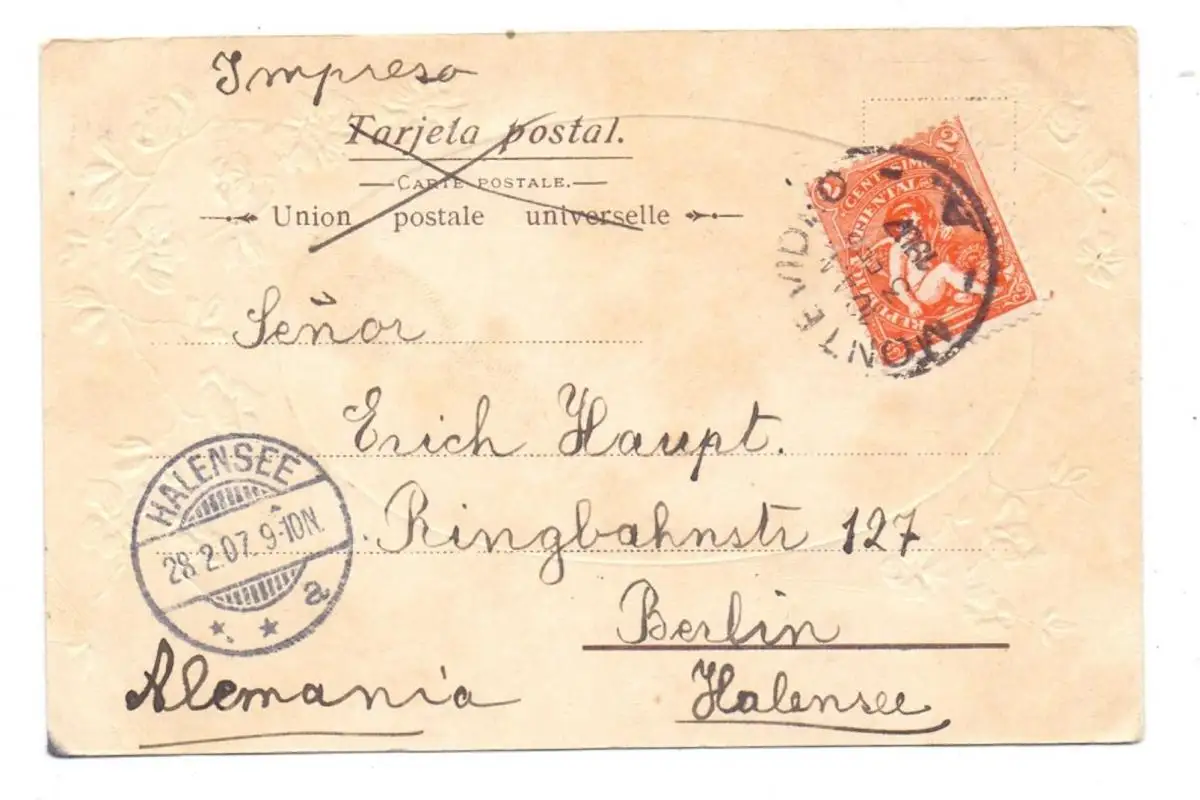 Impreso
Tarjeta postal.
CARTE POSTALE.
Union postale universelle
2 CENTESIMOS 2
ORIENTAL
MONTEVIDEO
A
Señor
Erich Haupt.
Ringbahnstr 127
Berlin
Halensee
Alemania
HALENSEE
28.2.07. 9-10N.
a